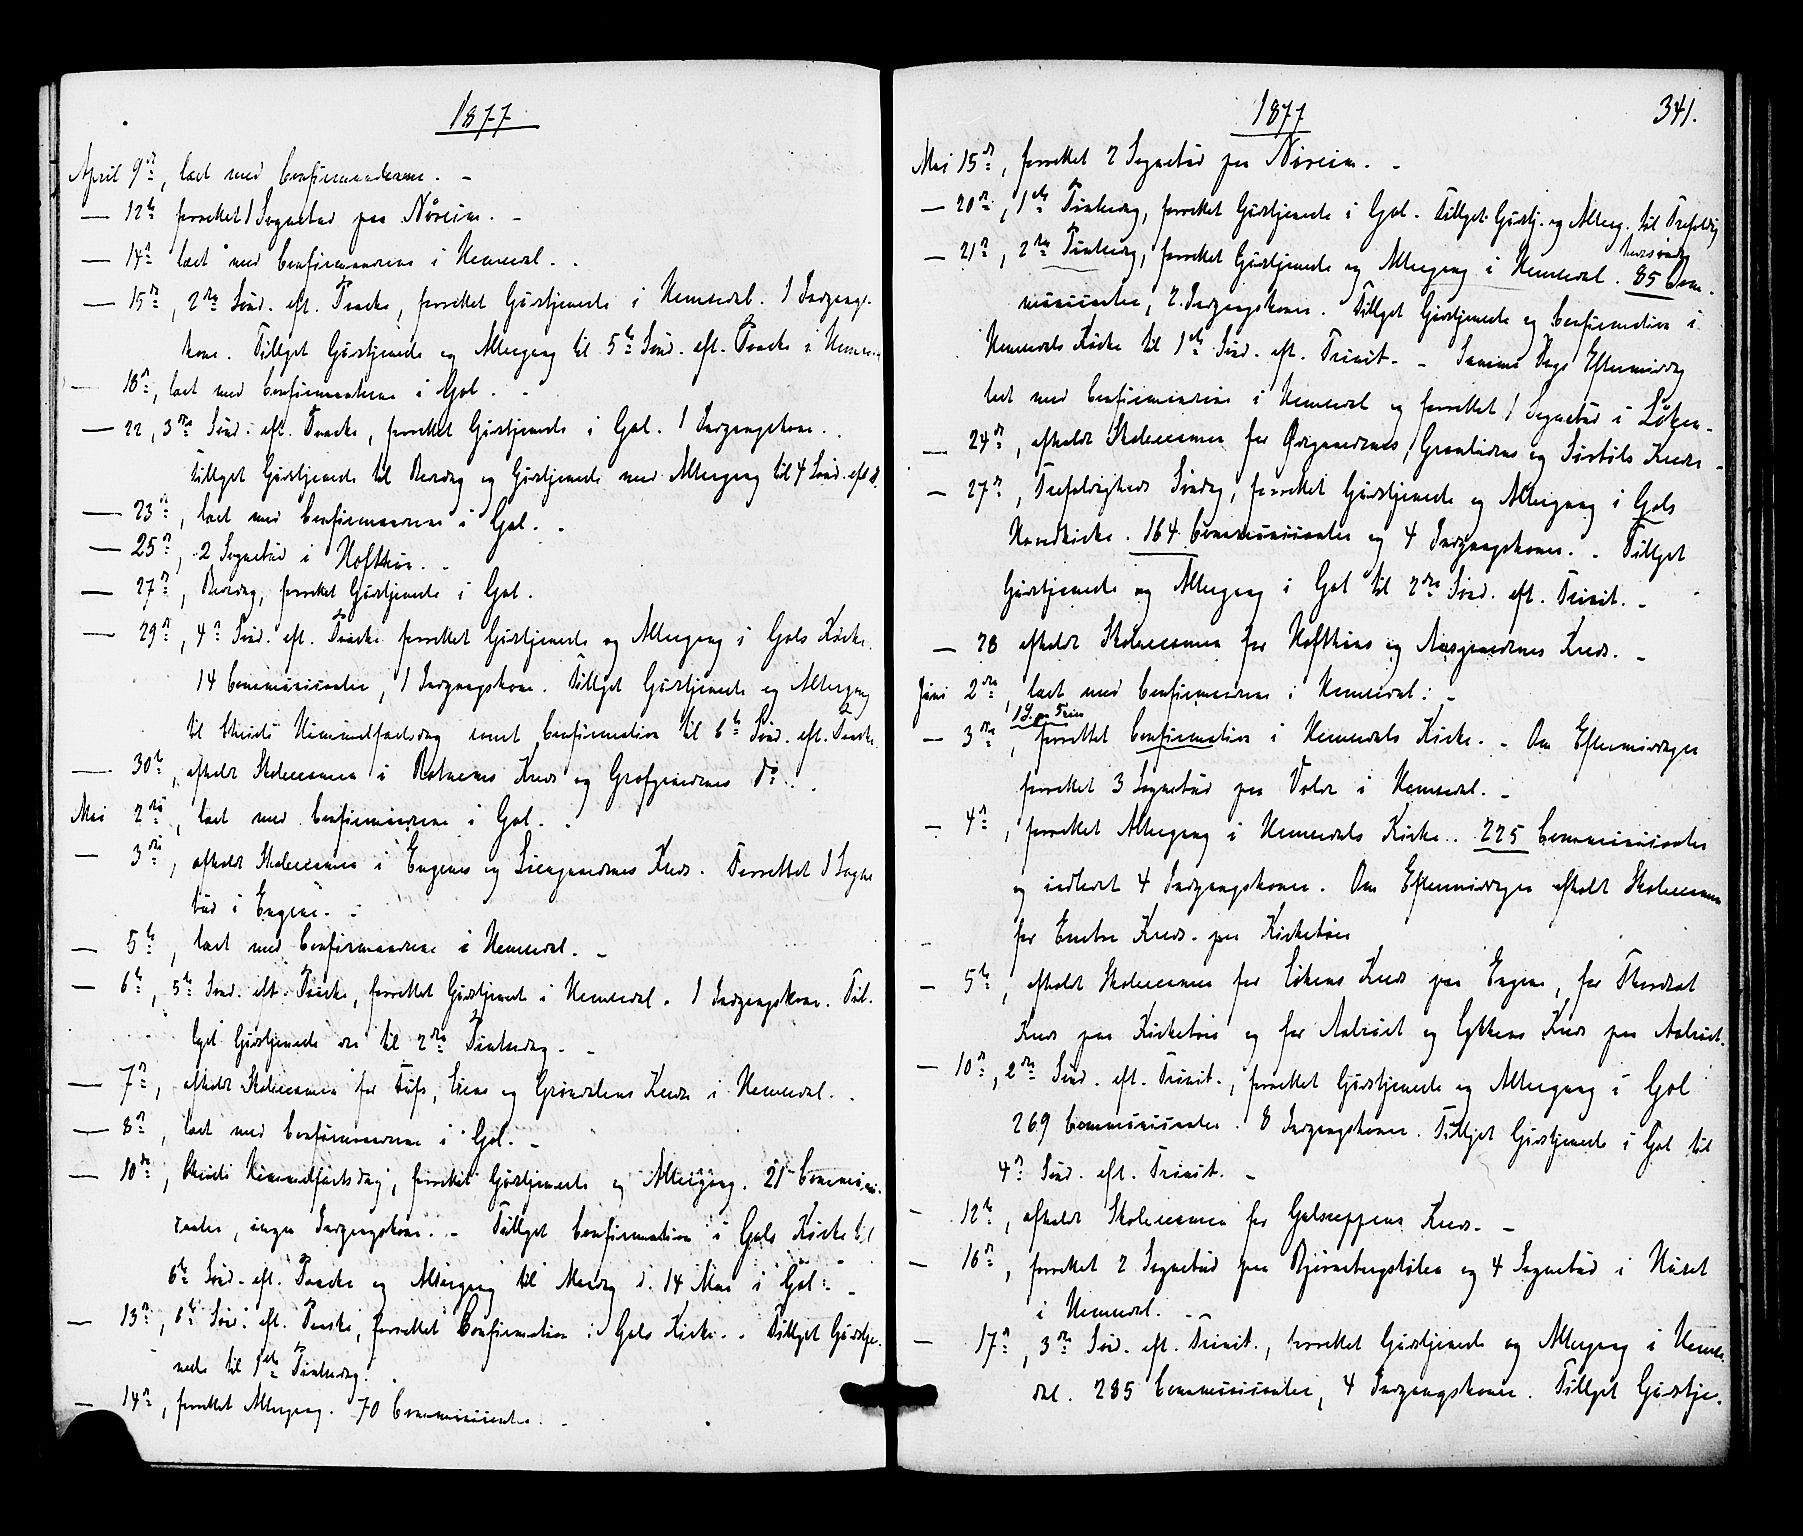 1877
April 9de, læst med Confirmanderne. –
— 12te forrettet 1 Sognebud paa Noreim. –
— 14de læst med Confirmanderne i Hemsedal. .
— 15de, 2den Sønd. eft. Paaske, forrettet Gudstjeneste i Hemsedal. 1 Indgangs-
kone. Tillyst Gudstjeneste og Altergang til 5te Sønd. eft. Paaske i Hemse
— 18de, læst med Confirmanterne i Gol. –
— 22, 3die Sønd. eft. Paaske, forrettet Gudstjeneste i Gol. 1 Indgangskone. .
Tillyst Gudstjeneste til Bededag og Gudstjeneste med Altergang til 4 Sønd. eft P.
— 23de, læst med Confirmanderne i Gol. –
— 25de, 2 Sognebud i Hofthun. –
— 27de, Bededag, forrettet Gudstjeneste i Gol.
— 29de, 4de Sønd. eft. Paaske forrettet Gudstjeneste og Altergang i Gols Kirke.
14 Communicanter, 1 Indgangskone. Tillyst Gudstjeneste og Altergang
til Christi Himmelfartsdag samt Confirmation til 6te Sønd. eft. Paaske.
— 30te, afholdt Skoleexamen i Kreds og do. .
Mai 2den, læst med Confirmanderne i Gol. .
— 3die, afholdt Skoleexamen i Engenes og Kreds. Forrettet 1 Sogne
bud i Engene. –
— 5te, læst med Confirmanderne i Hemsedal. –
— 6te, 5te Sønd. eft. Paaske, forrettet Gudstjeneste i Hemsedal. 1 Indgangskone. Til-
lyst Gudstjeneste der til 2den Pintsedag. –
— 7de, afholdt Skoleexamen for Tufs, Liens og Grøndalens Kreds i Hemsedal. .
— 8de, læst med Confirmanderne i Gol. –
— 10de, Christi Himmelfartsdag, forrettet Gudstjeneste og Altergang. 21 Communi-
canter, ingen Indgangskone. – Tillyst Confirmation i Gols Kirke til
6te Sønd. eft. Paaske og Altergang til Mandag d. 14 Mai i Gol. –
— 13de, 6te Sønd. eft. Paaske, forrettet Confirmation i Gols Kirke. – Tillyst Gudstje-
neste til 1ste Pintsedag. .
— 14de, forrettet Altergang. 70 Communicanter. –
1877
341.
Mai 15de, forrettet 2 Sognebud paa Noreim. –
— 20de, 1ste Pintsedag, forrettet Gudstjeneste i Gol. Tillyst Gudstj. og Alterg. til Trefoldig
hedssøndag
— 21de, 2den Pintsedag, forrettet Gudstjeneste og Altergang i Hemsedal. 85 Com-
municanter, 2 Indgangskoner. Tillyst Gudstjeneste og Confirmation i
Hemsedals Kirke til 1ste Sønd. eft. Trinit. – Samme Dags Eftermiddag
læst med Confirmanderne i Hemsedal og forrettet 1 Sognebud i Løken. –
— 24de, afholdt Skoleexamen for Grønlidens og Kreds –
— 27de, Trefoldigheds Søndag, forrettet Gudstjeneste og Altergang i Gols
Hovedkirke. 164 Communicanter og 4 Indgangskoner. – Tillyst
Gudstjeneste og Altergang i Gol til 2den Sønd. eft. Trinit. –
— 28 afholdt Skoleexamen for Hofthuns og Kreds. –
Juni 2den, læst med Confirmanderne i Hemsedal. –
1 S. p. Trin
— 3die, forrettet Confirmation i Hemsedals Kirke. – Om Eftermiddagen
forrettet 3 Sognebud paa i Hemsedal. –
— 4de, forrettet Altergang i Hemsedals Kirke. . 225 Communicanter
og indledet 4 Indgangskoner. Om Eftermiddagen afholdt Skoleexamen
for Kreds. paa Kirkebøen
— 5te, afholdt Skoleexamen for Løkens Kreds paa Engene, for
Kreds paa Kirkebøen og for Aalrust og Lykkens Kreds paa Aalrust.
— 10de, 2den Sønd. eft. Trinit., forrettet Gudstjeneste og Altergang i Gol
269 Communicanter. 8 Indgangskoner. Tillyst Gudstjeneste i Gol til
4de Sønd. eft. Trinit. –
— 12te, afholdt Skoleexamen for Golreppens Kreds. –
— 16de, forrettet 2 Sognebud paa Bjørnebergstølen og 4 Sognebud i Huset
i Hemsedal. –
— 17de, 3die Sønd. eft. Trinit., forrettet Gudstjeneste og Altergang i Hemse-
dal. 285 Communicanter, 4 Indgangskoner. Tillyst Gudstje-